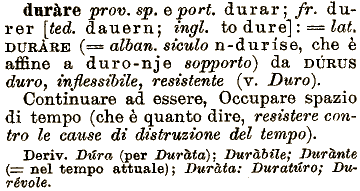 duràre prov. sp. e port. durar; fr. du-
rer [ted. dauern; ingl. to dure]: = lat.
DURÀRE (= alban. siculo n-duríse, che è
affine a duro-nje sopporto) da DÚRUS
duro, inflessibile, resistente (v. Duro).
Continuare ad essere, Occupare spazio
di tempo (che è quanto dire, resistere con-
tro le cause di distruzione del tempo).
Deriv. Dúra (per Duràta); Duràbile; Durànte
(= nel tempo attuale); Duràta: Duratúro; Du-
révole.